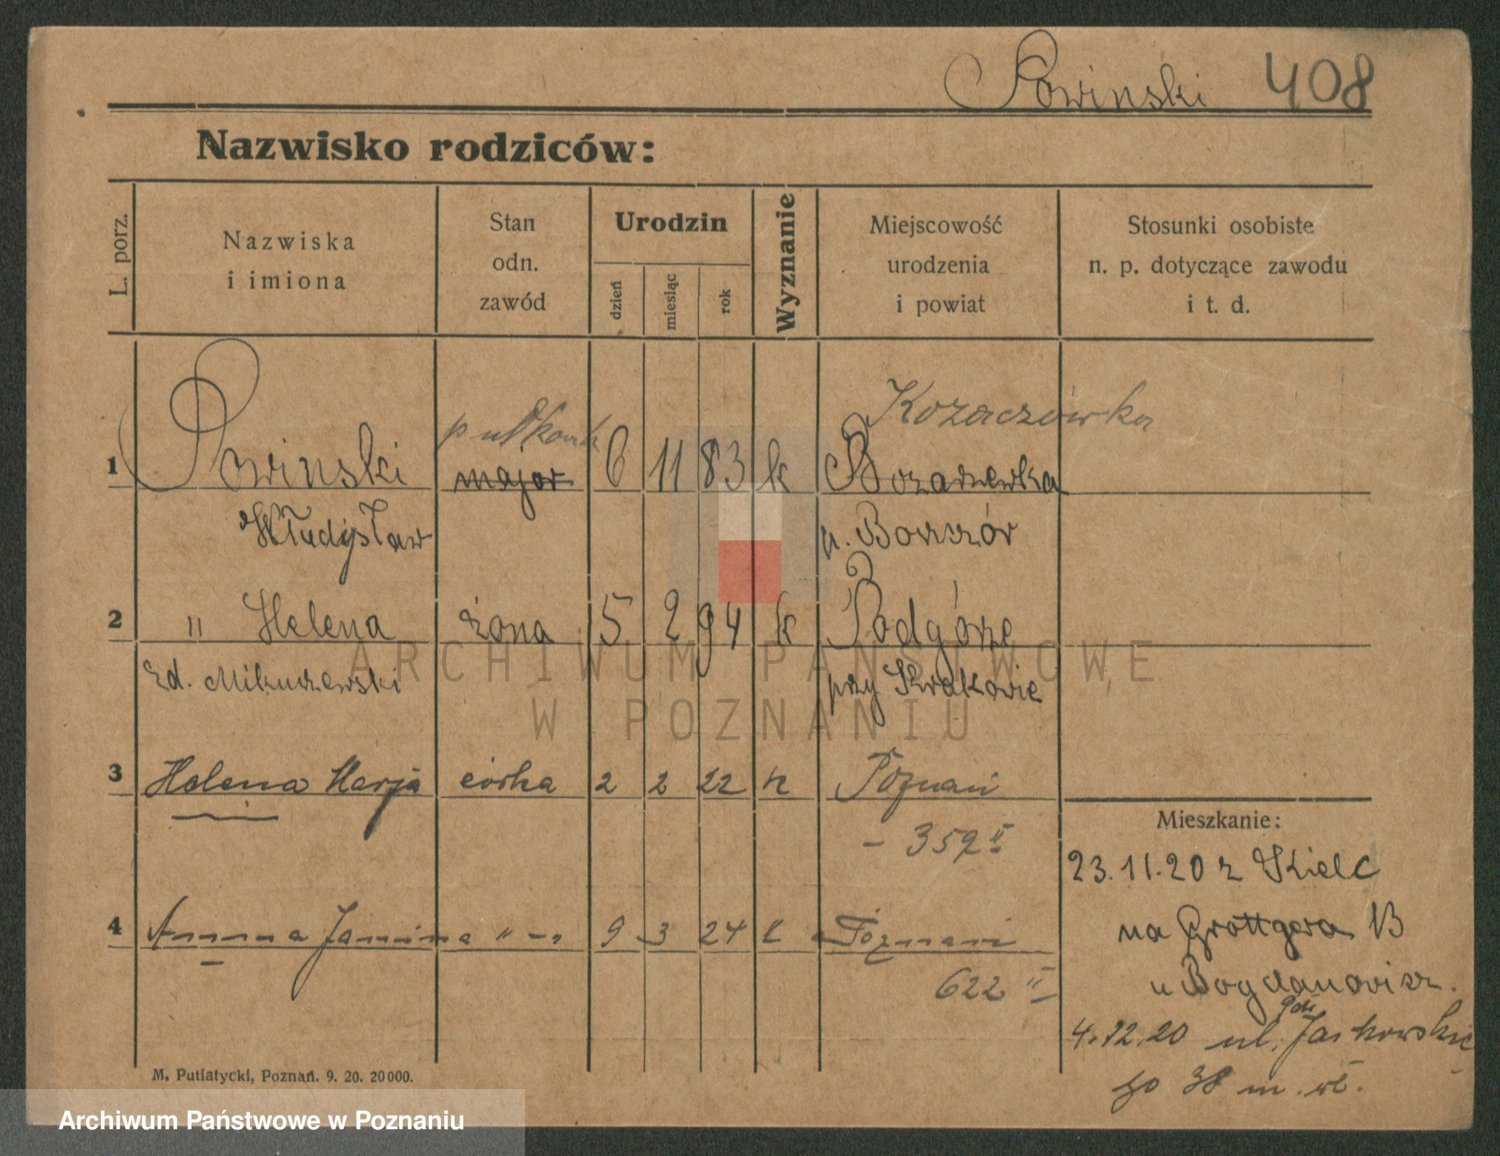 Powinski 408
Nazwisko rodziców:
L. porz.
Nazwiska
i imiona
Stan
odn.
zawód
Urodzin
dzień
miesiąc
rok
Wyznanie
Miejscowość
urodzenia
i powiat
Stosunki osobiste
n. p. dotyczące zawodu
i t. d.
pułkownik Kozaczówka
1 Powinski major 6 11 83 k
Władysław p. Borszór
2 " Helena żona 5 2 94 k Podgórze
przy Krakowie
3 Helena Marja córka 2 2 22 k Poznań
- 359 II
4 Anna Janina " - " 9 3 24 k Poznań
622 II
Mieszkanie:
23.11.20 z Kielc
na Grottgera 13
u Bogdanowicz.
4.12.20 ul. Jackowskie
go 38 m. wł.
M. Putiatycki, Poznań. 9. 20. 20000.
ARCHIWUM PAŃSTWOWE
W POZNANIU
Archiwum Państwowe w Poznaniu